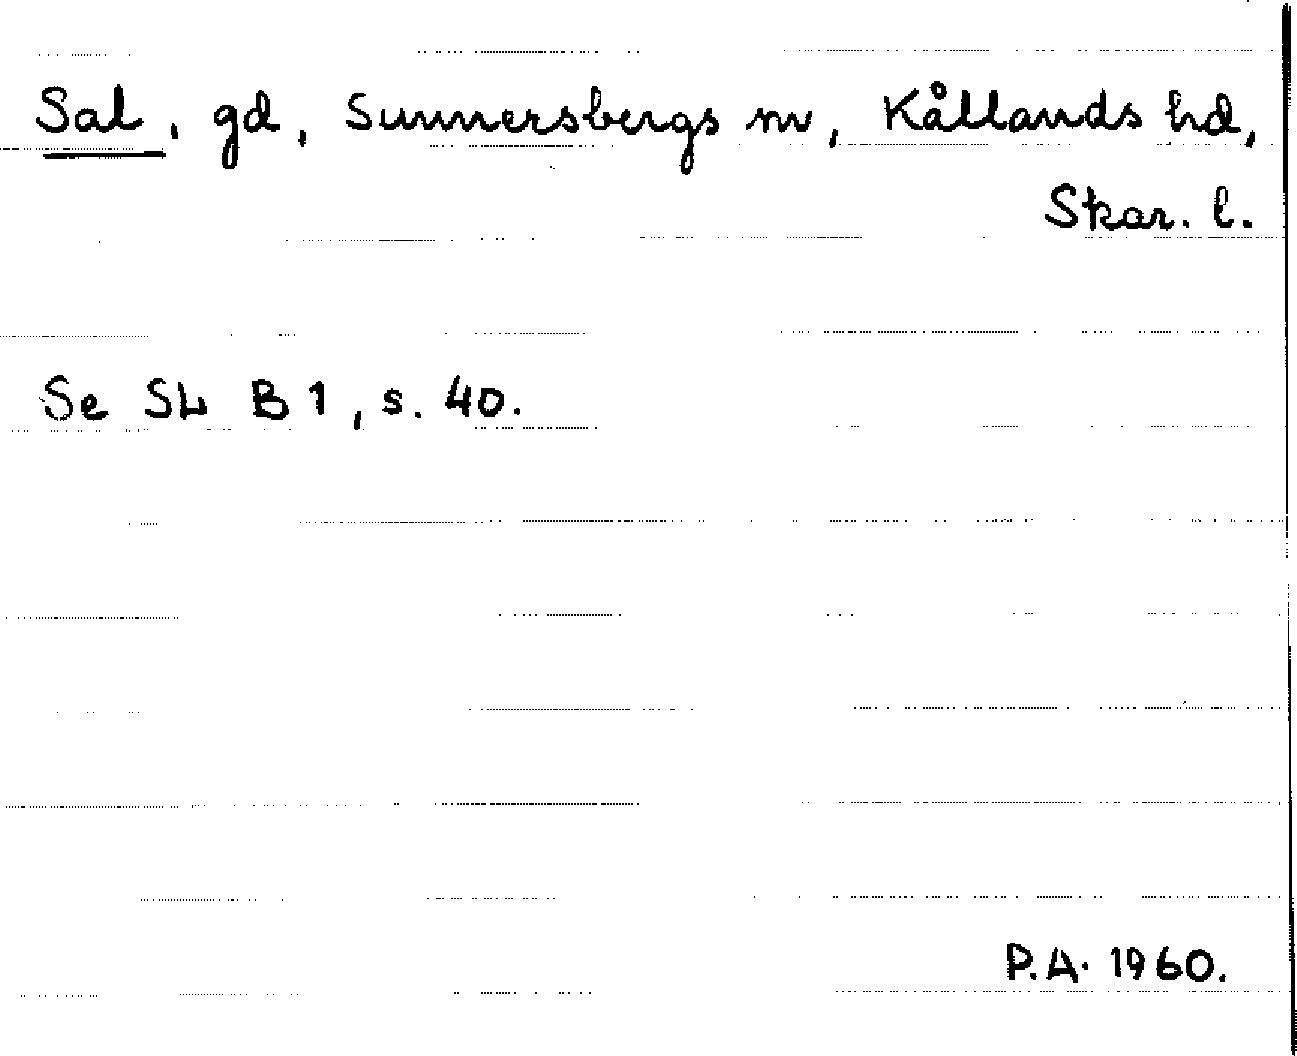 Sal, gd, Sunnersbergs sn, Kållands hd,
Skar. l.
Se Sk B 1, s. 40.
P.A. 1960.